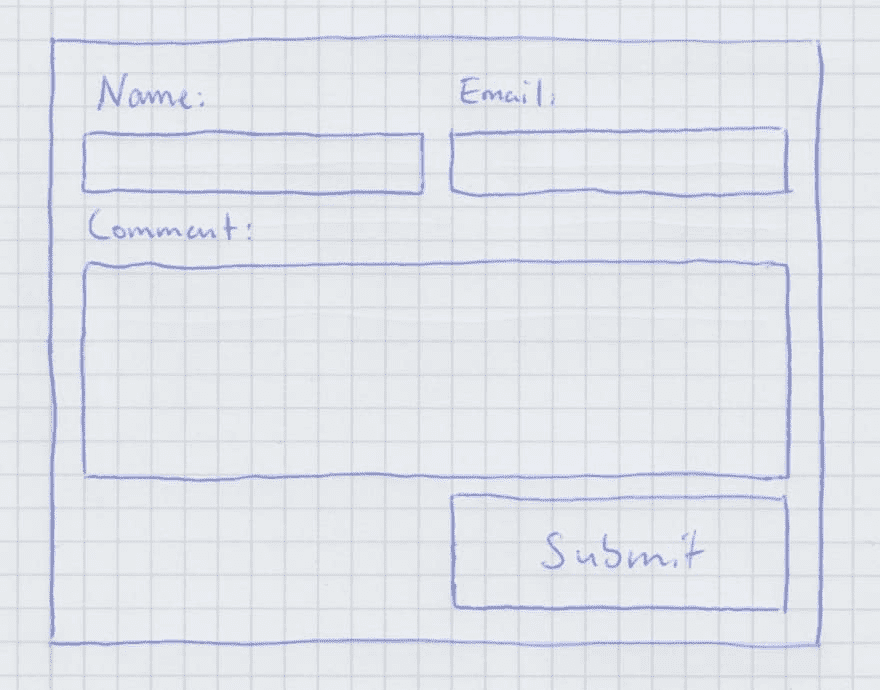 Name: Email:
Comment:
Submit